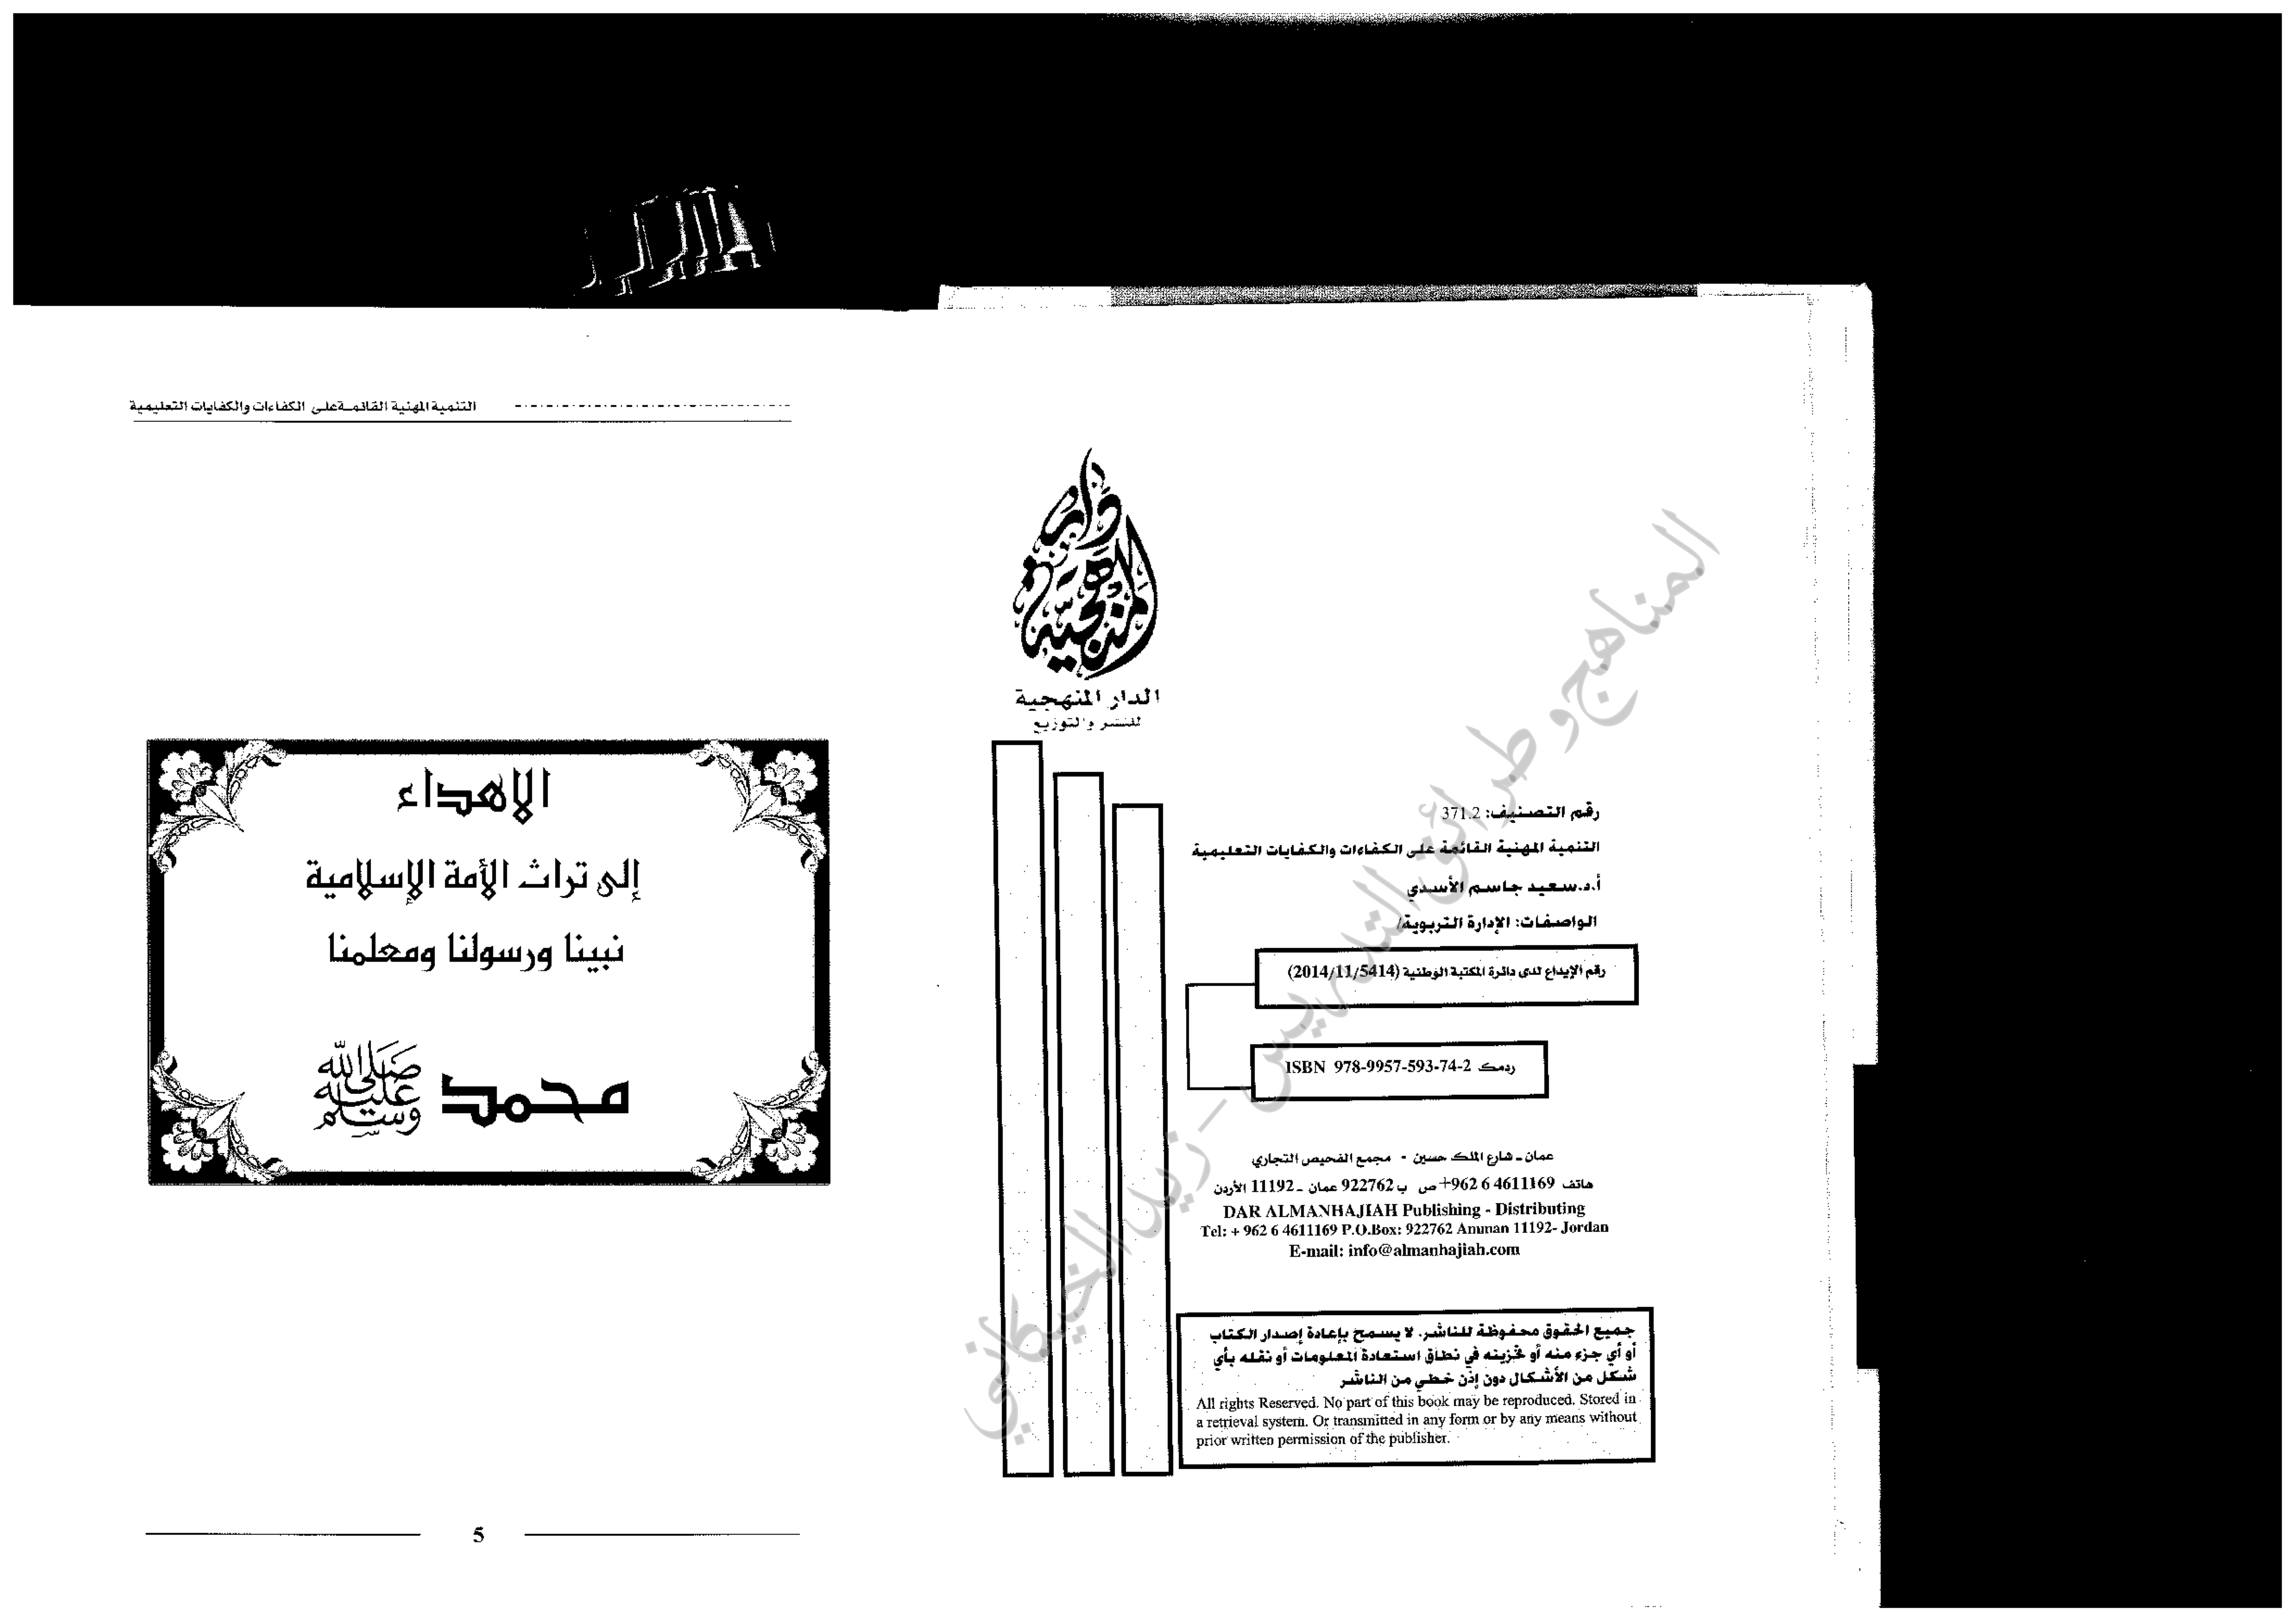 دار المنهجية
الدار المنهجية
للنشر والتوزيع
رقم التصنيف: 371.2
التنمية المهنية القائمة على الكفاءات والكفايات التعليمية
أ.د.سعيد جاسم الأسدي
الواصفات: الإدارة التربوية/
رقم الإيداع لدى دائرة المكتبة الوطنية (2014/11/5414)
ردمك ISBN 978-9957-593-74-2
عمان ـ شارع الملك حسين - مجمع الفحيص التجاري
هاتف 4611169 6 962+ ص ب 922762 عمان ـ 11192 الأردن
DAR ALMANHAJIAH Publishing - Distributing
Tel: + 962 6 4611169 P.O.Box: 922762 Amman 11192- Jordan
E-mail: info@almanhajiah.com
جميع الحقوق محفوظة للناشر. لا يسمح بإعادة إصدار الكتاب
أو أي جزء منه أو تخزينه في نطاق استعادة المعلومات أو نقله بأي
شكل من الأشكال دون إذن خطي من الناشر
All rights Reserved. No part of this book may be reproduced. Stored in
a retrieval system. Or transmitted in any form or by any means without
prior written permission of the publisher.
المناهج و طرائق التدريس – زيد الخيكاني
التنمية المهنية القائمة على الكفاءات والكفايات التعليمية
الاهداء
إلى تراث الأمة الإسلامية
نبينا ورسولنا ومعلمنا
محمد صلى الله عليه وسلم
5